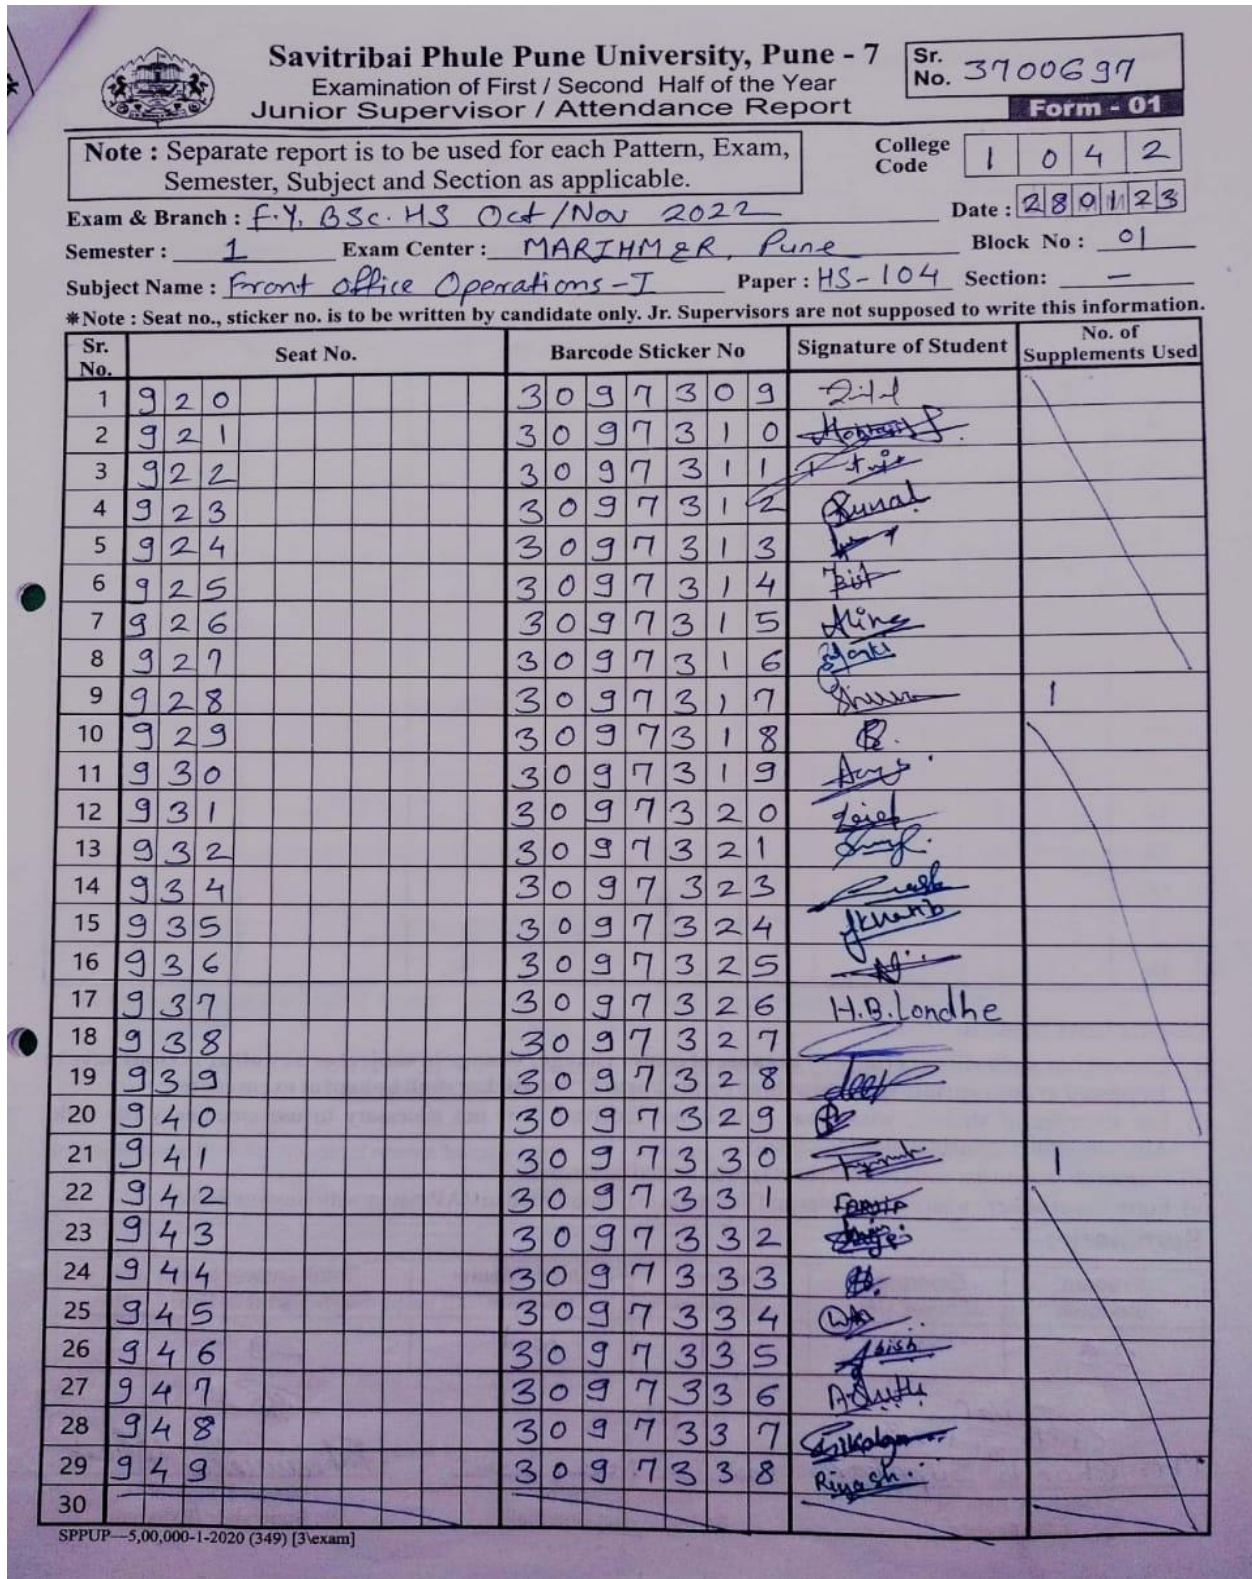 Savitribai Phule Pune University, Pune - 7
Examination of First / Second Half of the Year
Junior Supervisor / Attendance Report
Sr. No. 3700697
Form - 01
Note : Separate report is to be used for each Pattern, Exam,
Semester, Subject and Section as applicable.
College Code 1 0 4 2
Exam & Branch : F.Y. BSc. HS Oct/Nov 2022 Date : 280123
Semester : 1 Exam Center : MARIHM&R, Pune Block No : 01
Subject Name : Front office Operations-I Paper : HS-104 Section: —
*Note : Seat no., sticker no. is to be written by candidate only. Jr. Supervisors are not supposed to write this information.
Sr. No. Seat No. Barcode Sticker No Signature of Student No. of Supplements Used
1 920 3097309
2 921 3097310
3 922 3097311
4 923 3097312 Kunal
5 924 3097313
6 925 3097314
7 926 3097315
8 927 3097316
9 928 3097317 1
10 929 3097318
11 930 3097319
12 931 3097320
13 932 3097321
14 934 3097323
15 935 3097324
16 936 3097325
17 937 3097326 H.B.Londhe
18 938 3097327
19 939 3097328
20 940 3097329
21 941 3097330 1
22 942 3097331
23 943 3097332
24 944 3097333
25 945 3097334
26 946 3097335
27 947 3097336
28 948 3097337
29 949 3097338 Riyash.
30
SPPUP—5,00,000-1-2020 (349) [3\exam]